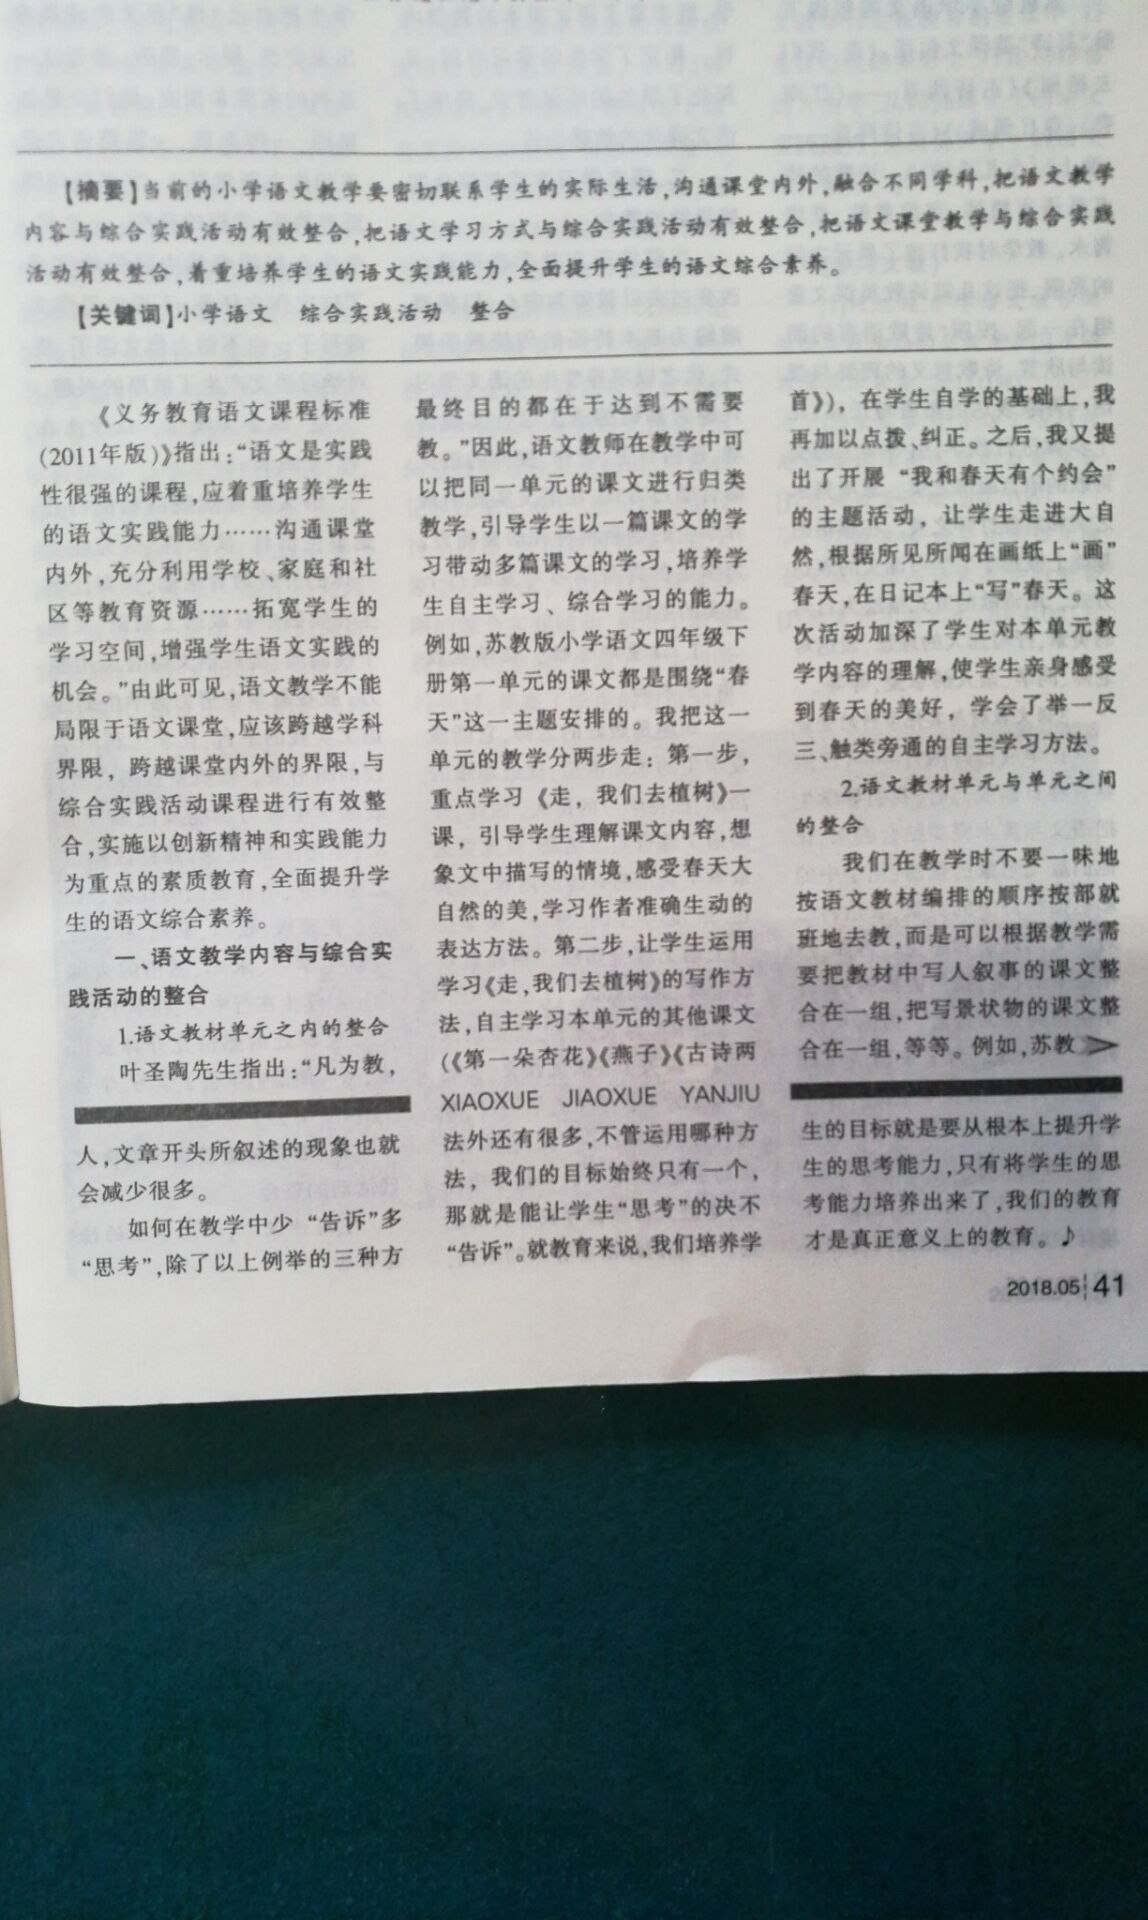 【摘要】当前的小学语文教学要密切联系学生的实际生活,沟通课堂内外,融合不同学科,把语文教学
内容与综合实践活动有效整合,把语文学习方式与综合实践活动有效整合,把语文课堂教学与综合实践
活动有效整合,着重培养学生的语文实践能力,全面提升学生的语文综合素养。
【关键词】小学语文 综合实践活动 整合
《义务教育语文课程标准
(2011年版)》指出:“语文是实践
性很强的课程,应着重培养学生
的语文实践能力……沟通课堂
内外,充分利用学校、家庭和社
区等教育资源……拓宽学生的
学习空间,增强学生语文实践的
机会。”由此可见,语文教学不能
局限于语文课堂,应该跨越学科
界限,跨越课堂内外的界限,与
综合实践活动课程进行有效整
合,实施以创新精神和实践能力
为重点的素质教育,全面提升学
生的语文综合素养。
一、语文教学内容与综合实
践活动的整合
1.语文教材单元之内的整合
叶圣陶先生指出:“凡为教,
最终目的都在于达到不需要
教。”因此,语文教师在教学中可
以把同一单元的课文进行归类
教学,引导学生以一篇课文的学
习带动多篇课文的学习,培养学
生自主学习、综合学习的能力。
例如,苏教版小学语文四年级下
册第一单元的课文都是围绕“春
天”这一主题安排的。我把这一
单元的教学分两步走:第一步,
重点学习《走,我们去植树》一
课,引导学生理解课文内容,想
象文中描写的情境,感受春天大
自然的美,学习作者准确生动的
表达方法。第二步,让学生运用
学习《走,我们去植树》的写作方
法,自主学习本单元的其他课文
(《第一朵杏花》《燕子》《古诗两
首》),在学生自学的基础上,我
再加以点拨、纠正。之后,我又提
出了开展“我和春天有个约会”
的主题活动,让学生走进大自
然,根据所见所闻在画纸上“画”
春天,在日记本上“写”春天。这
次活动加深了学生对本单元教
学内容的理解,使学生亲身感受
到春天的美好,学会了举一反
三、触类旁通的自主学习方法。
2.语文教材单元与单元之间
的整合
我们在教学时不要一味地
按语文教材编排的顺序按部就
班地去教,而是可以根据教学需
要把教材中写人叙事的课文整
合在一组,把写景状物的课文整
合在一组,等等。例如,苏教
人,文章开头所叙述的现象也就
会减少很多。
如何在教学中少“告诉”多
“思考”,除了以上例举的三种方
XIAOXUE JIAOXUE YANJIU
法外还有很多,不管运用哪种方
法,我们的目标始终只有一个,
那就是能让学生“思考”的决不
“告诉”。就教育来说,我们培养学
生的目标就是要从根本上提升学
生的思考能力,只有将学生的思
考能力培养出来了,我们的教育
才是真正意义上的教育。♪
2018.05 41